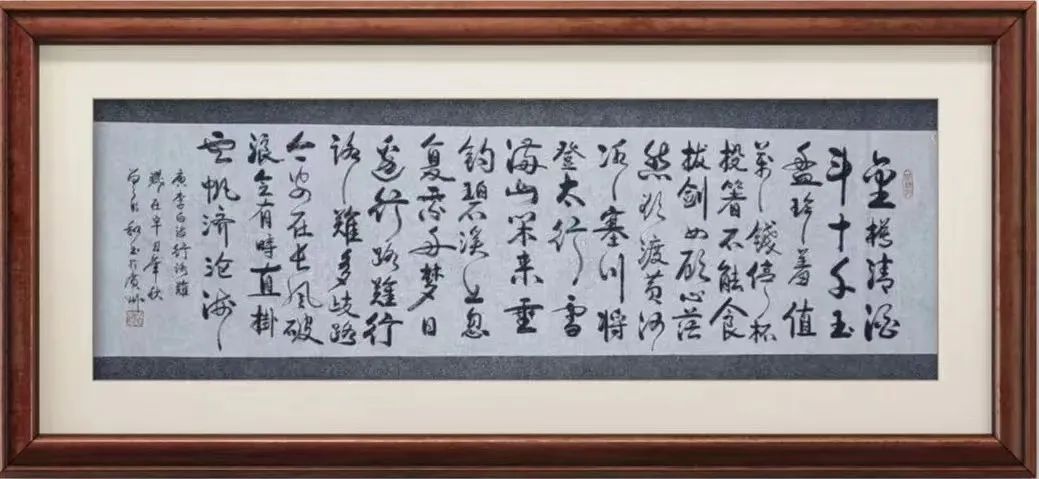 金樽清酒
斗十千玉
盘珍羞值
萬錢停杯
投箸不能食
拔剑四顾心茫
然欲渡黄河
冰塞川将
登太行雪
满山闲来垂
钓碧溪上忽
复乘舟梦日
边行路難行
路難多歧路
今安在长风破
浪会有時直掛
云帆济沧海
唐李白诗行路難
歲在辛丑年秋
和书於广州